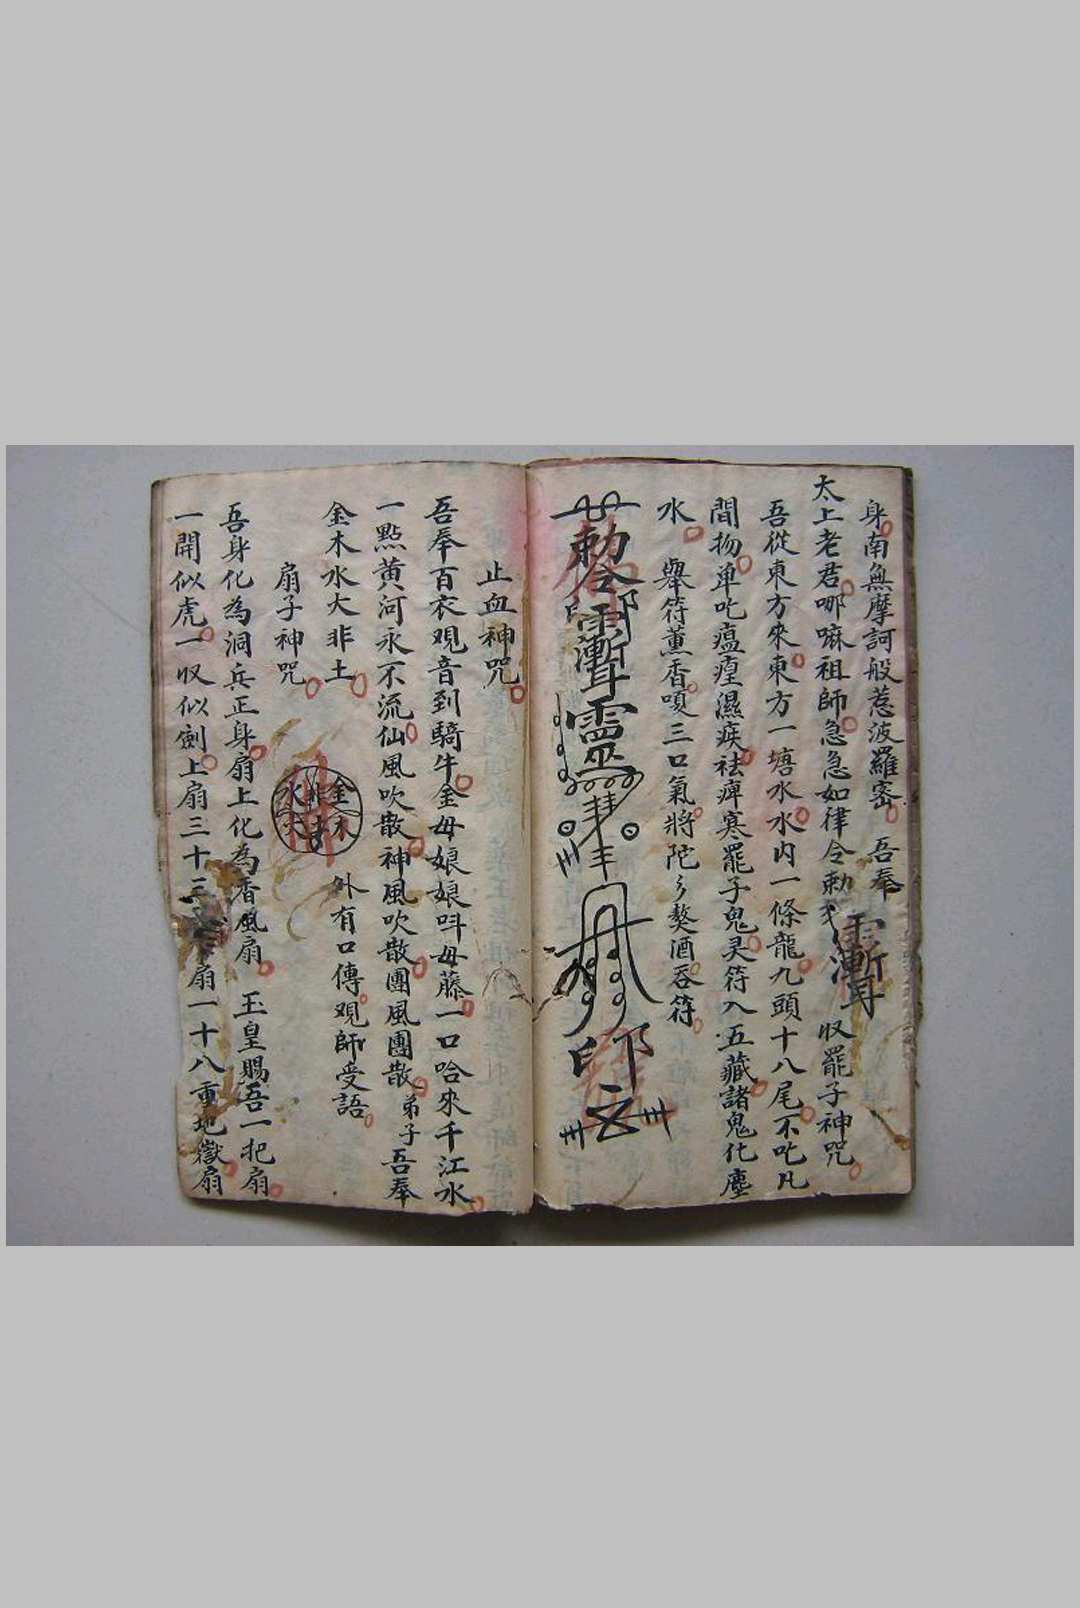 身南無摩訶般惹波羅密 吾奉
太上老君哪嘛祖師急急如律令勅 收罷子神咒
吾從東方來東方一塘水水內一條龍九頭十八尾不吃凡
間物单吃瘟瘽濕疾祛痺寒罷子鬼灵符入五藏諸鬼化塵
水 舉符薰香嗄三口氣將陀彡熬酒吞符
勅令
靈
印
止血神咒
吾奉百衣观音到騎牛金母娘娘呌毋藤一口哈來千江水
一點黄河永不流仙風吹散神風吹散團風團散弟子吾奉
金木水大非土 外有口傳观師受語
扇子神咒
金木水大非土
吾身化為洞兵正身扇上化為香風扇 玉皇賜吾一把扇
一開似虎一収似劍上扇三十三 扇一十八重地嶽扇